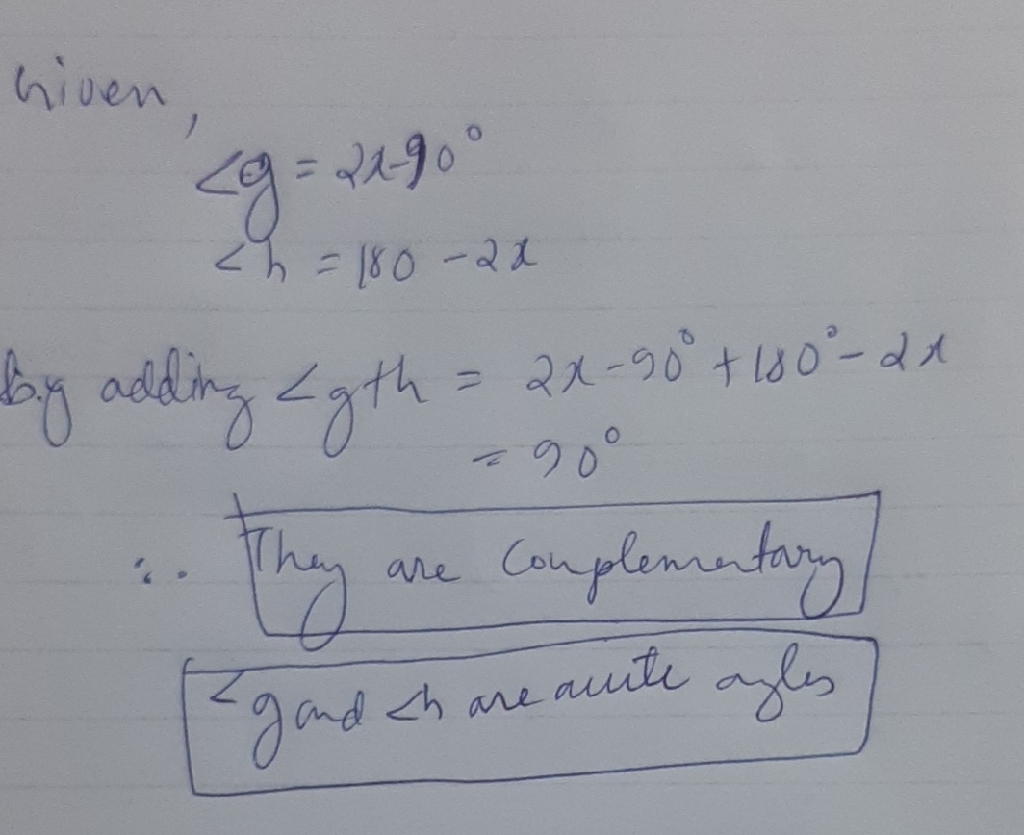 Given,
<g = 2x-90°
<h = 180 - 2x
By adding <g+h = 2x-90° + 180° - 2x
= 90°
∴ They are Complementary
<g and <h are acute angles